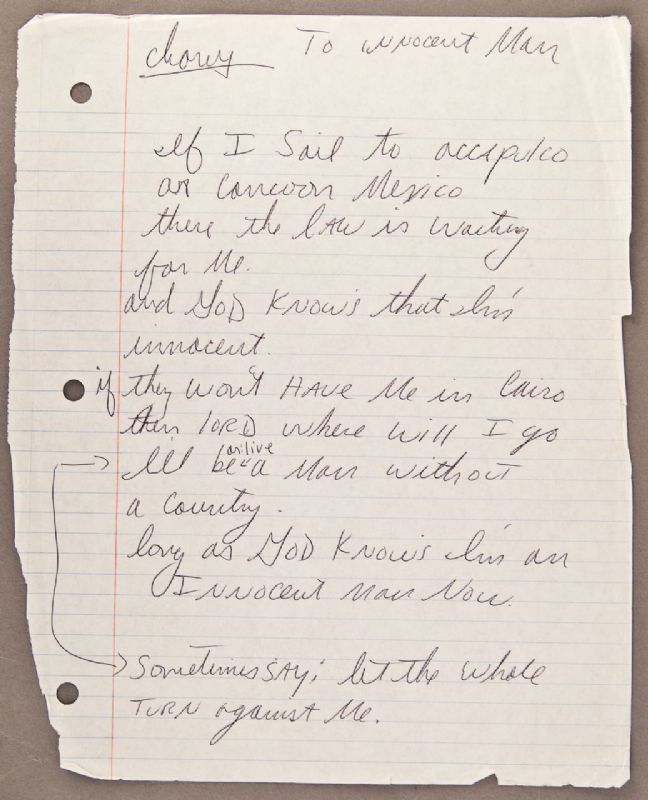 chorus To innocent Man
If I Sail to accapulco
or Cancoon Mexico
there the LAW is waiting
for Me.
and GOD KNOWS that I'm
innocent.
if they won't HAVE Me in Cairo
then LORD where will I go
I'll be a Man without
or live
a country.
long as GOD KNOWS I'm an
INNOCENT MAN NOW.
Sometimes SAY; let the whole
TURN against Me.